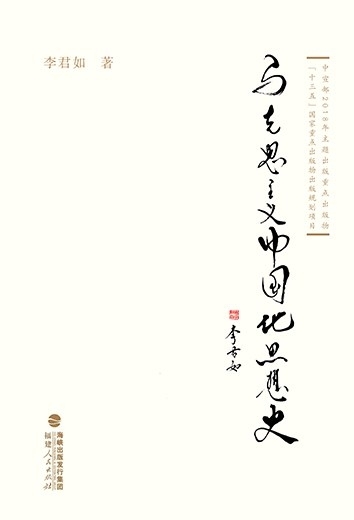 李君如 著
中宣部2018年主题出版重点出版物
「十三五」国家重点出版物出版规划项目
马克思主义中国化思想史
李君如
海峡出版发行集团
福建人民出版社